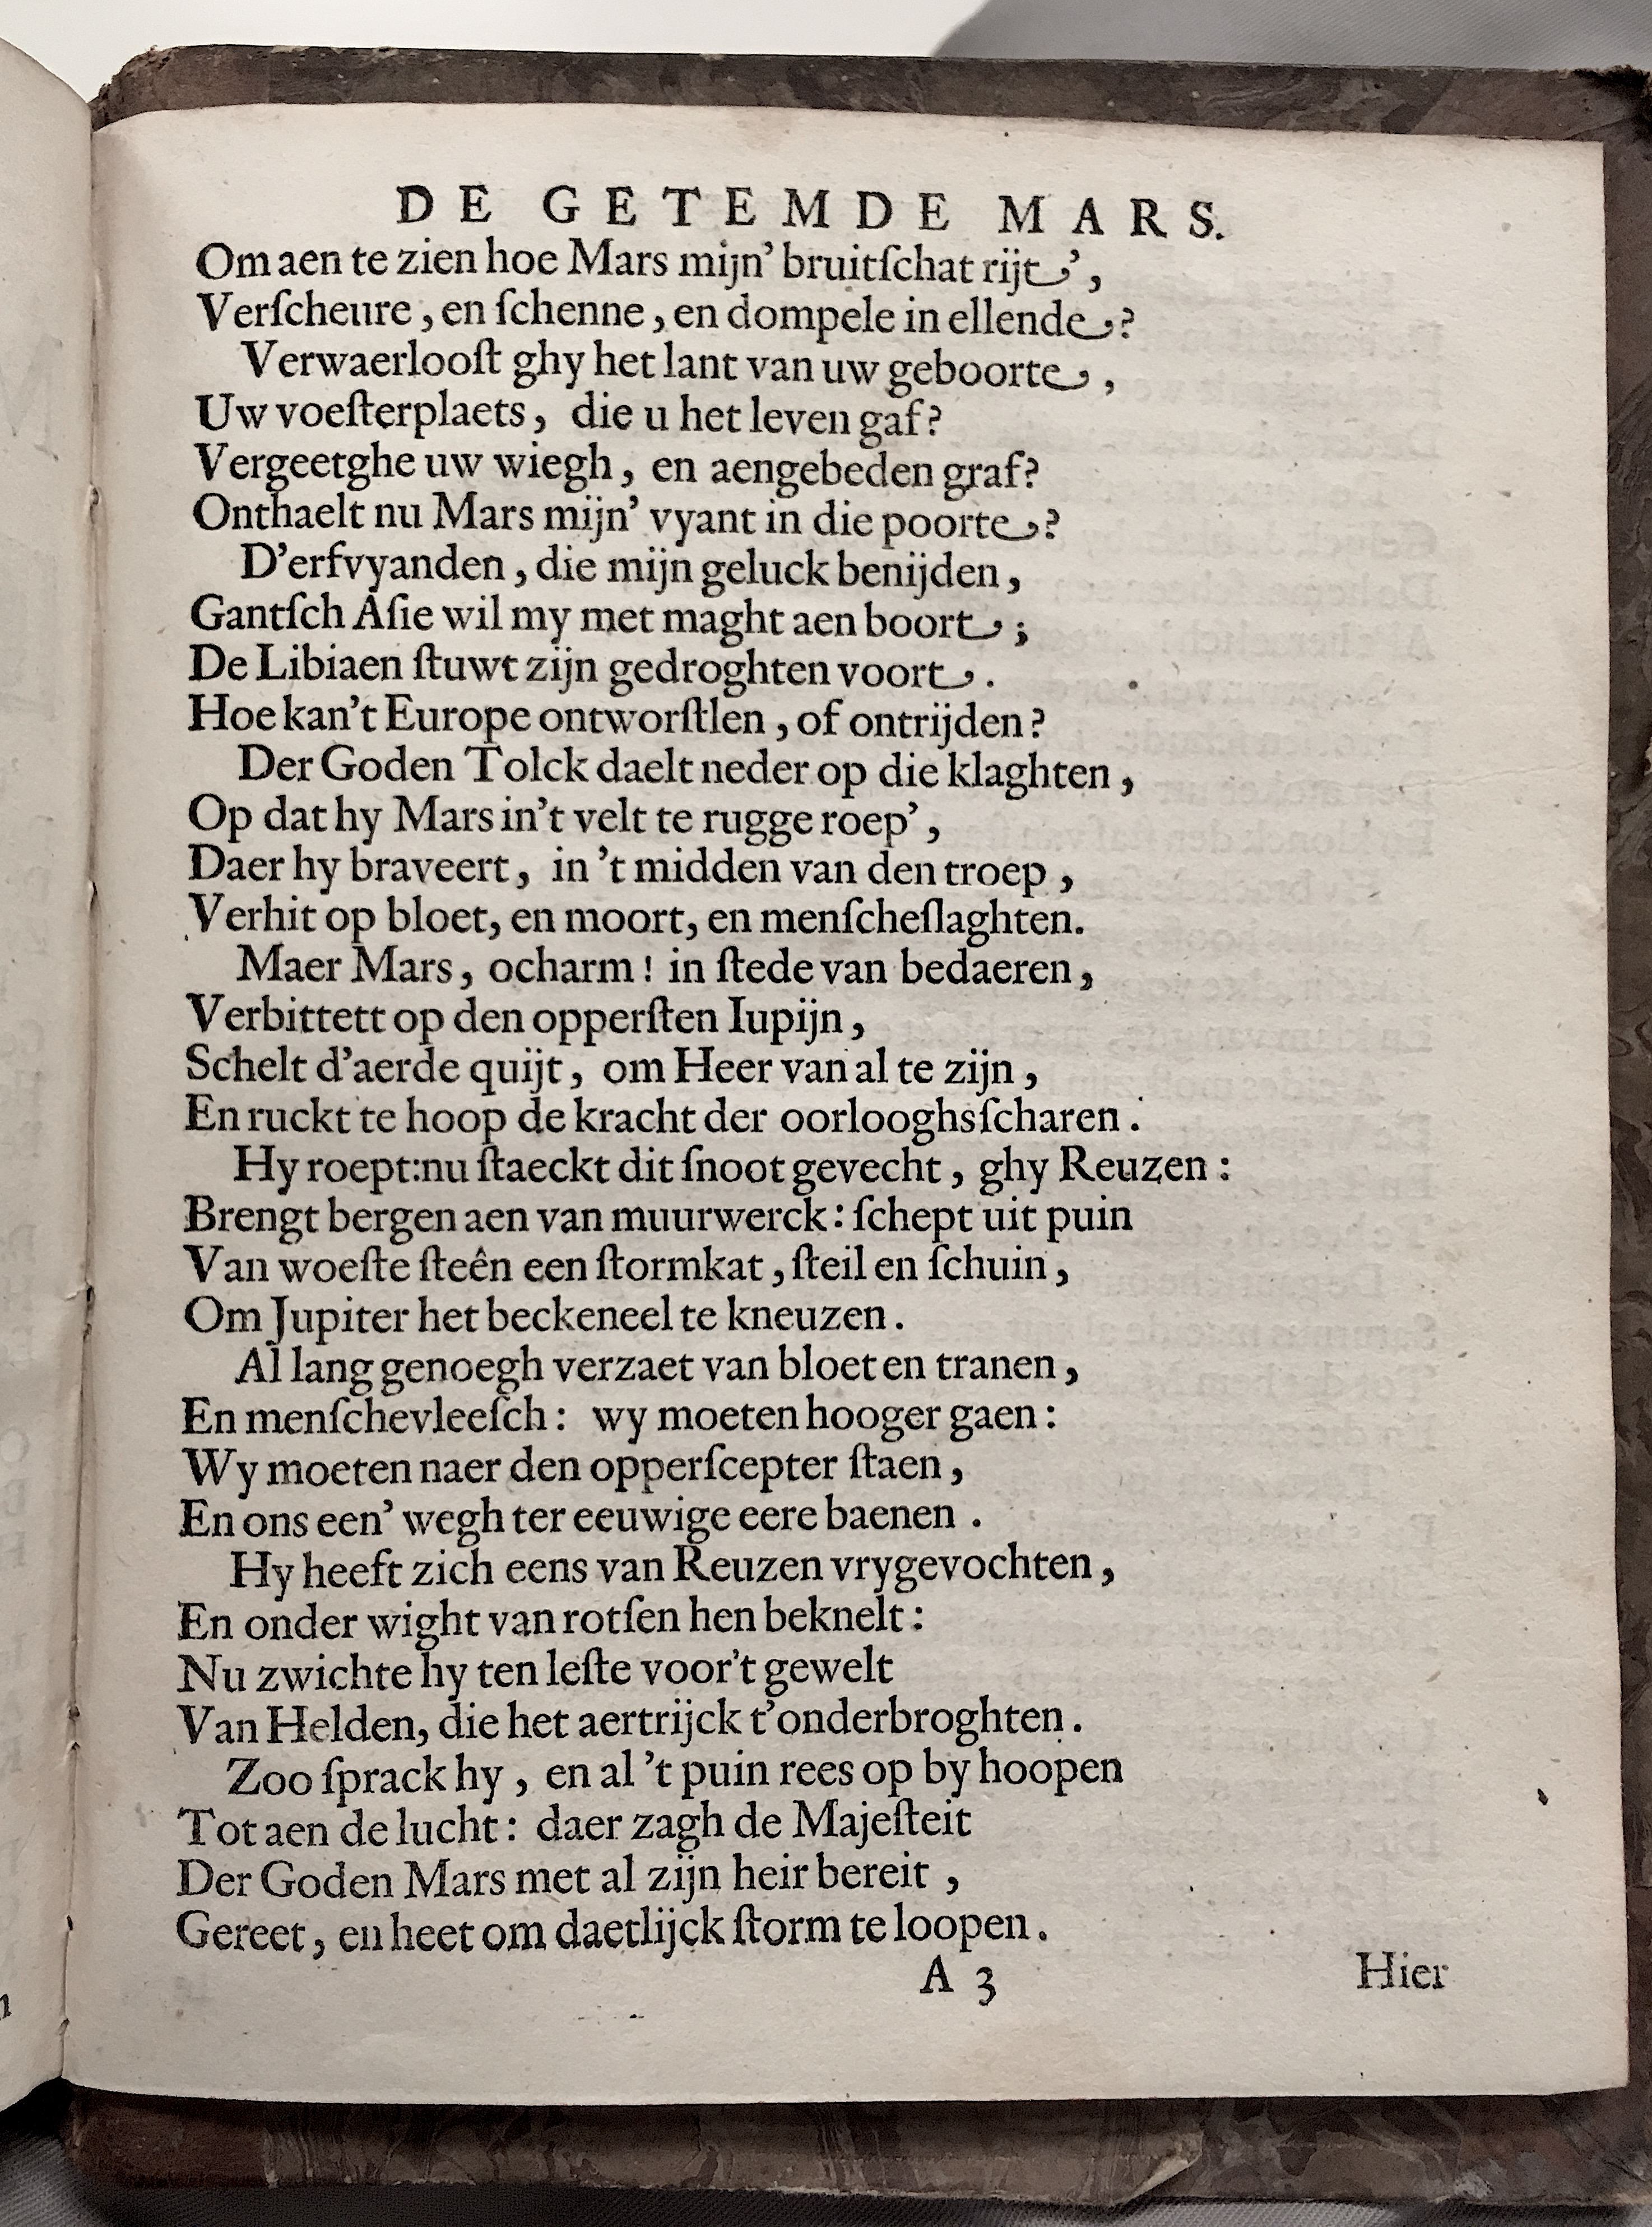 DE GETEMDE MARS.
Om aen te zien hoe Mars mijn' bruitſchat rijt',
Verſcheure, en ſchenne, en dompele in ellende?
Verwaerlooſt ghy het lant van uw geboorte,
Uw voeſterplaets, die u het leven gaf?
Vergeetghe uw wiegh, en aengebeden graf?
Onthaelt nu Mars mijn' vyant in die poorte?
D'erfvyanden, die mijn geluck benijden,
Gantſch Aſie wil my met maght aen boort;
De Libiaen ſtuwt zijn gedroghten voort.
Hoe kan't Europe ontworſtlen, of ontrijden?
Der Goden Tolck daelt neder op die klaghten,
Op dat hy Mars in't velt te rugge roep',
Daer hy braveert, in 't midden van den troep,
Verhit op bloet, en moort, en menſcheſlaghten.
Maer Mars, ocharm! in ſtede van bedaeren,
Verbittett op den opperſten Iupijn,
Schelt d'aerde quijt, om Heer van al te zijn,
En ruckt te hoop de kracht der oorlooghsſcharen.
Hy roept:nu ſtaeckt dit ſnoot gevecht, ghy Reuzen:
Brengt bergen aen van muurwerck: ſchept uit puin
Van woeſte ſteên een ſtormkat, ſteil en ſchuin,
Om Jupiter het beckeneel te kneuzen.
Al lang genoegh verzaet van bloet en tranen,
En menſchevleeſch: wy moeten hooger gaen:
Wy moeten naer den opperſcepter ſtaen,
En ons een' wegh ter eeuwige eere baenen.
Hy heeft zich eens van Reuzen vrygevochten,
En onder wight van rotſen hen beknelt:
Nu zwichte hy ten leſte voor't gewelt
Van Helden, die het aertrijck t'onderbroghten.
Zoo ſprack hy, en al 't puin rees op by hoopen
Tot aen de lucht: daer zagh de Majeſteit
Der Goden Mars met al zijn heir bereit,
Gereet, en heet om daetlijck ſtorm te loopen.
A 3 Hier